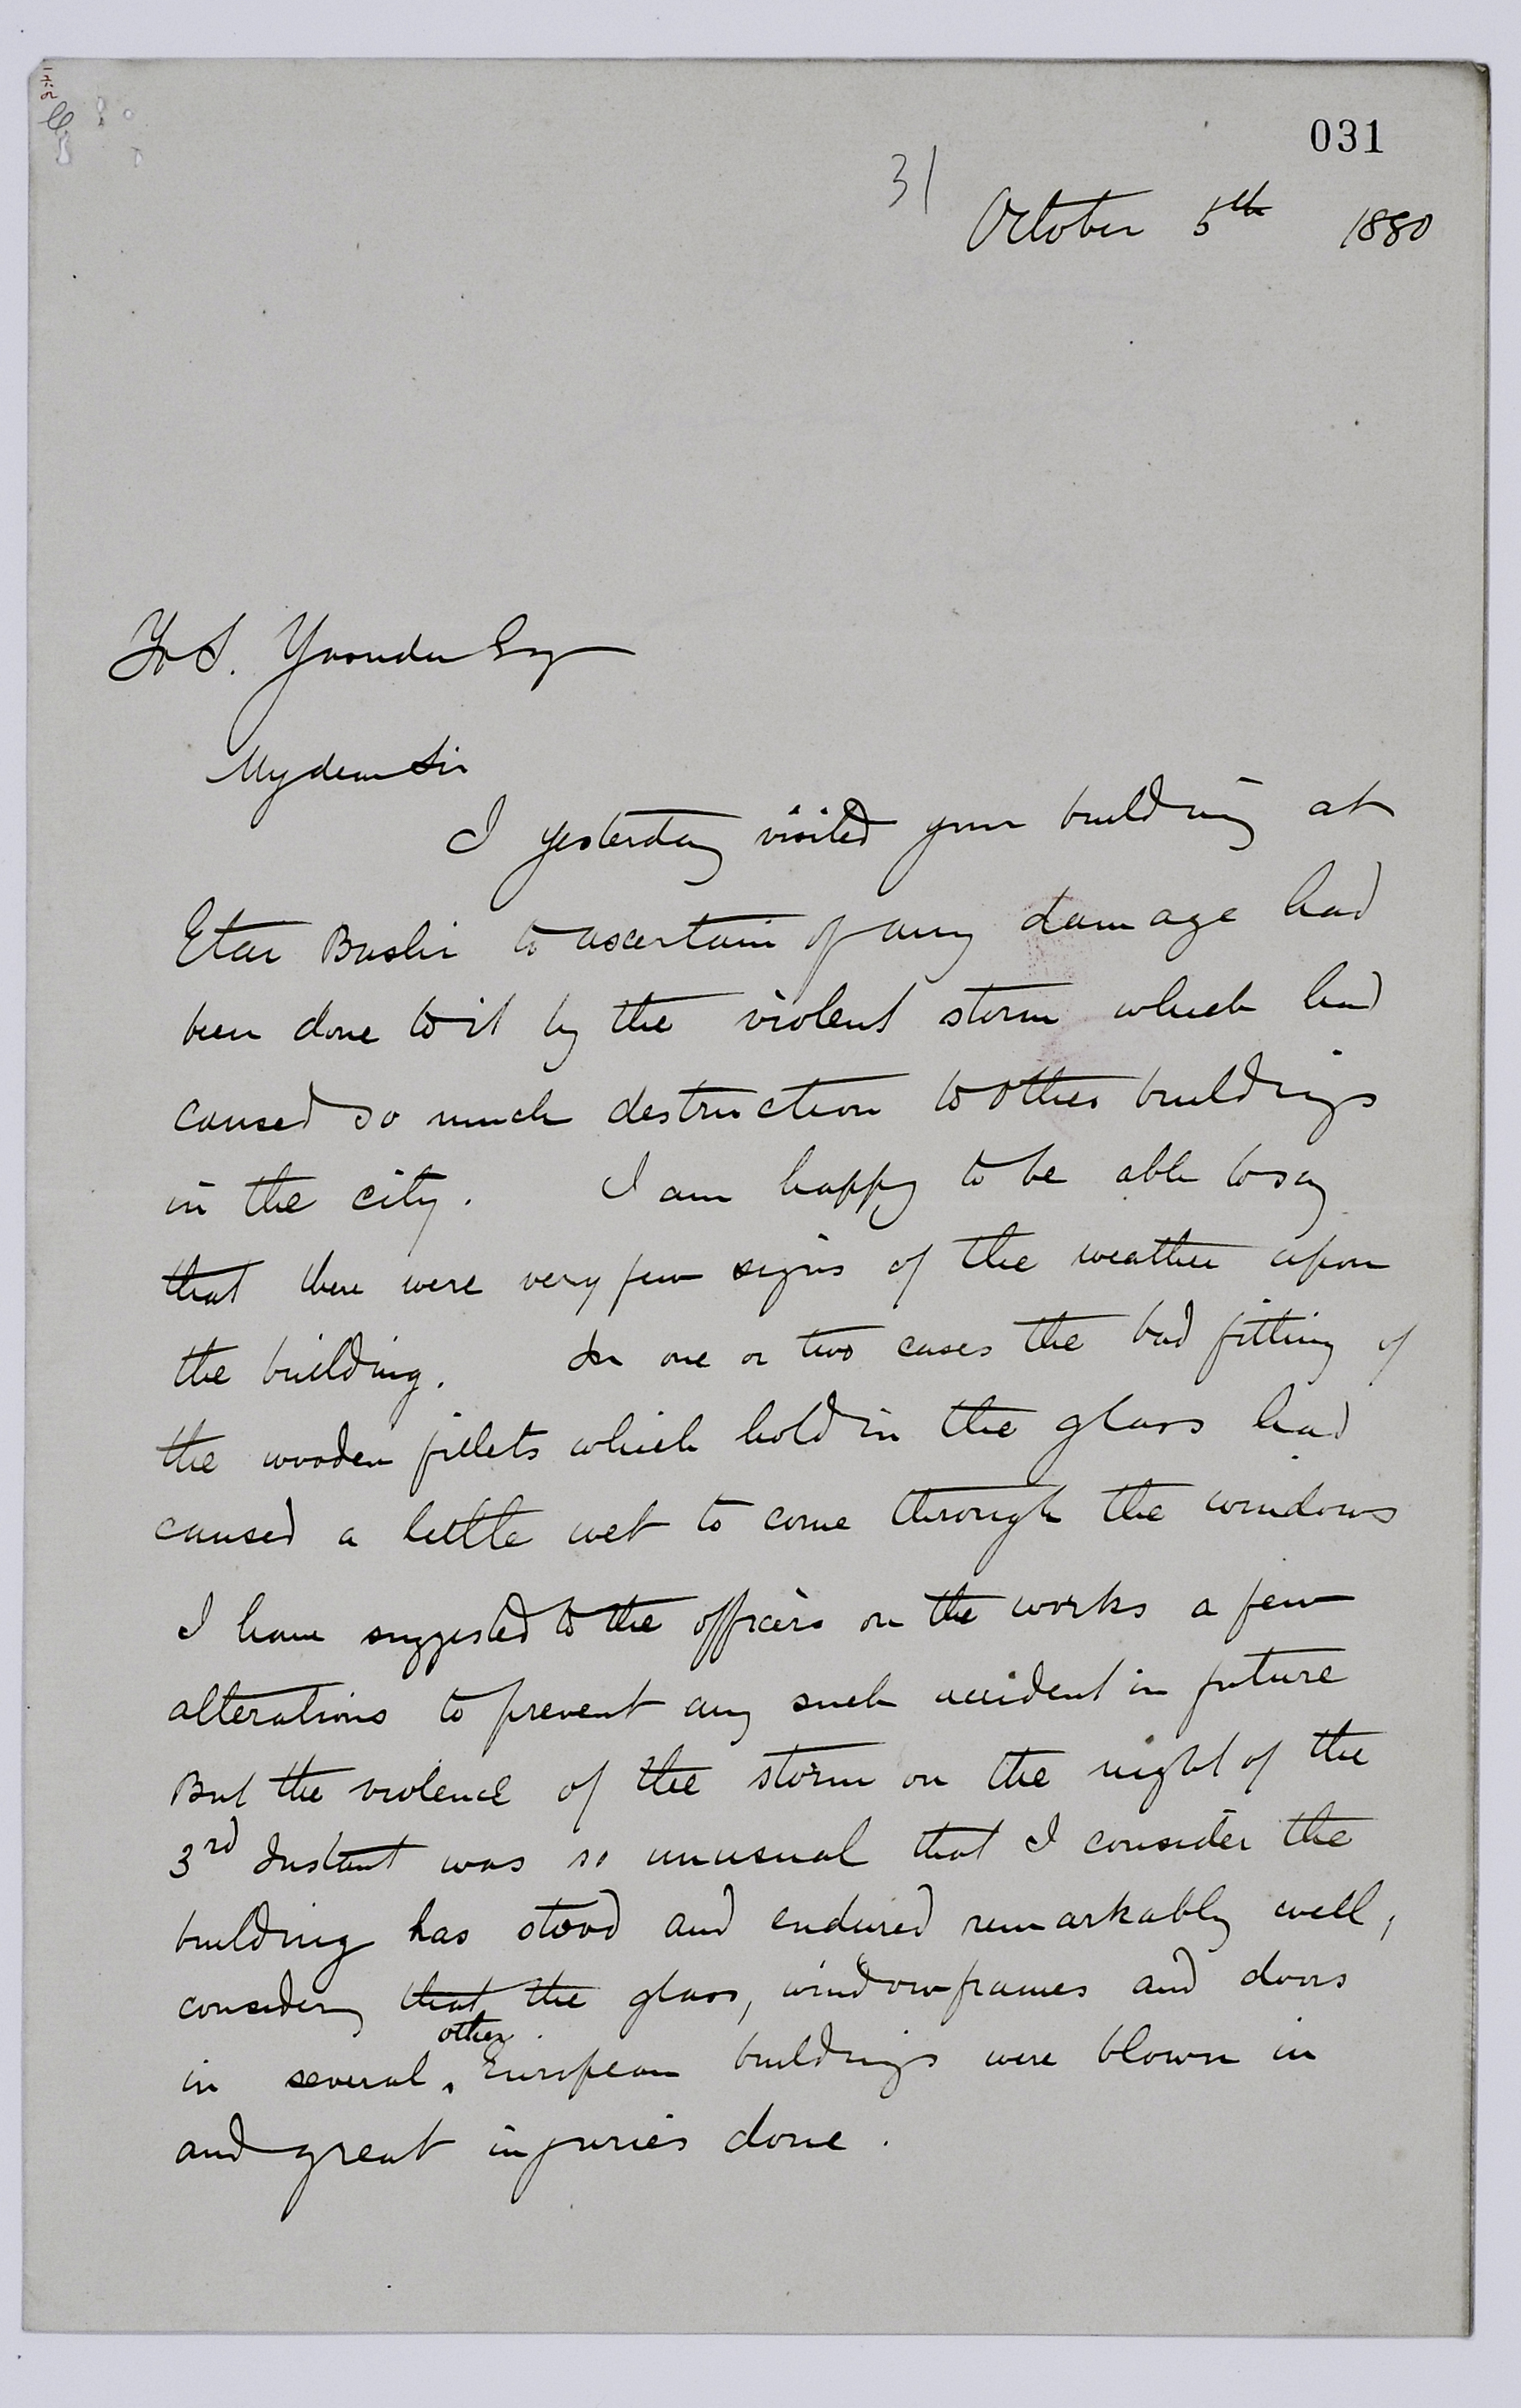 031
31
October 5th 1880
To S. Yasuda Esq
My dear Sir
I yesterday visited your building at
Etai Bashi to ascertain if any damage had
been done to it by the violent storm which had
caused so much destruction to other buildings
in the city. I am happy to be able to say
that there were very few signs of the weather upon
the building. In one or two cases the bad fitting of
the wooden fillets which hold in the glass had
caused a little wet to come through the windows
I have suggested to the officers on the works a few
alterations to prevent any such accident in future
But the violence of the storm on the night of the
3rd Instant was so unusual that I consider the
building has stood and endured remarkably well,
considering that the glass, window frames and doors
other
in several European buildings were blown in
and great injuries done.